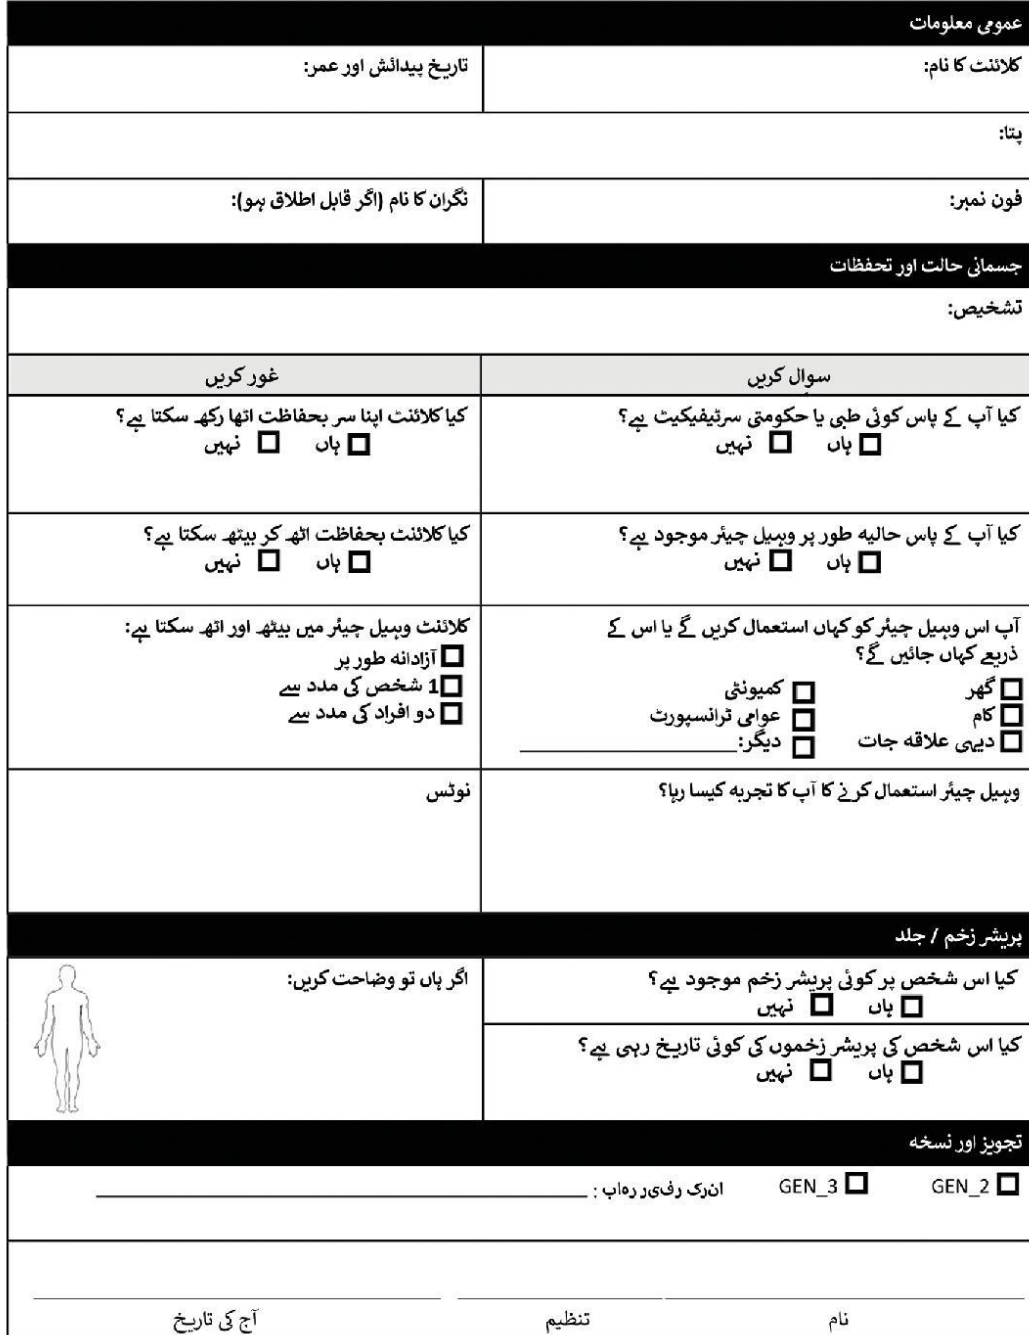 عمومی معلومات
کلائنٹ کا نام:
تاریخ پیدائش اور عمر:
پتا:
فون نمبر:
نگران کا نام (اگر قابل اطلاق ہو):
جسمانی حالت اور تحفظات
تشخیص:
سوال کریں
غور کریں
کیا آپ کے پاس کوئی طبی یا حکومتی سرٹیفیکیٹ ہے؟
ہاں نہیں
کیا کلائنٹ اپنا سر بحفاظت اٹھا رکھ سکتا ہے؟
ہاں نہیں
کیا آپ کے پاس حالیہ طور پر وہیل چیئر موجود ہے؟
ہاں نہیں
کیا کلائنٹ بحفاظت اٹھ کر بیٹھ سکتا ہے؟
ہاں نہیں
آپ اس وہیل چیئر کو کہاں استعمال کریں گے یا اس کے
ذریعے کہاں جائیں گے؟
گھر کمیونٹی
کام عوامی ٹرانسپورٹ
دیہی علاقہ جات دیگر:
کلائنٹ وہیل چیئر میں بیٹھ اور اٹھ سکتا ہے:
آزادانہ طور پر
1 شخص کی مدد سے
دو افراد کی مدد سے
وہیل چیئر استعمال کرنے کا آپ کا تجربہ کیسا رہا؟
نوٹس
پریشر زخم / جلد
کیا اس شخص پر کوئی پریشر زخم موجود ہے؟
ہاں نہیں
کیا اس شخص کی پریشر زخموں کی کوئی تاریخ رہی ہے؟
ہاں نہیں
اگر ہاں تو وضاحت کریں:
تجویز اور نسخہ
GEN_2 GEN_3 انرک رفیر رہاب :
نام
تنظیم
آج کی تاریخ